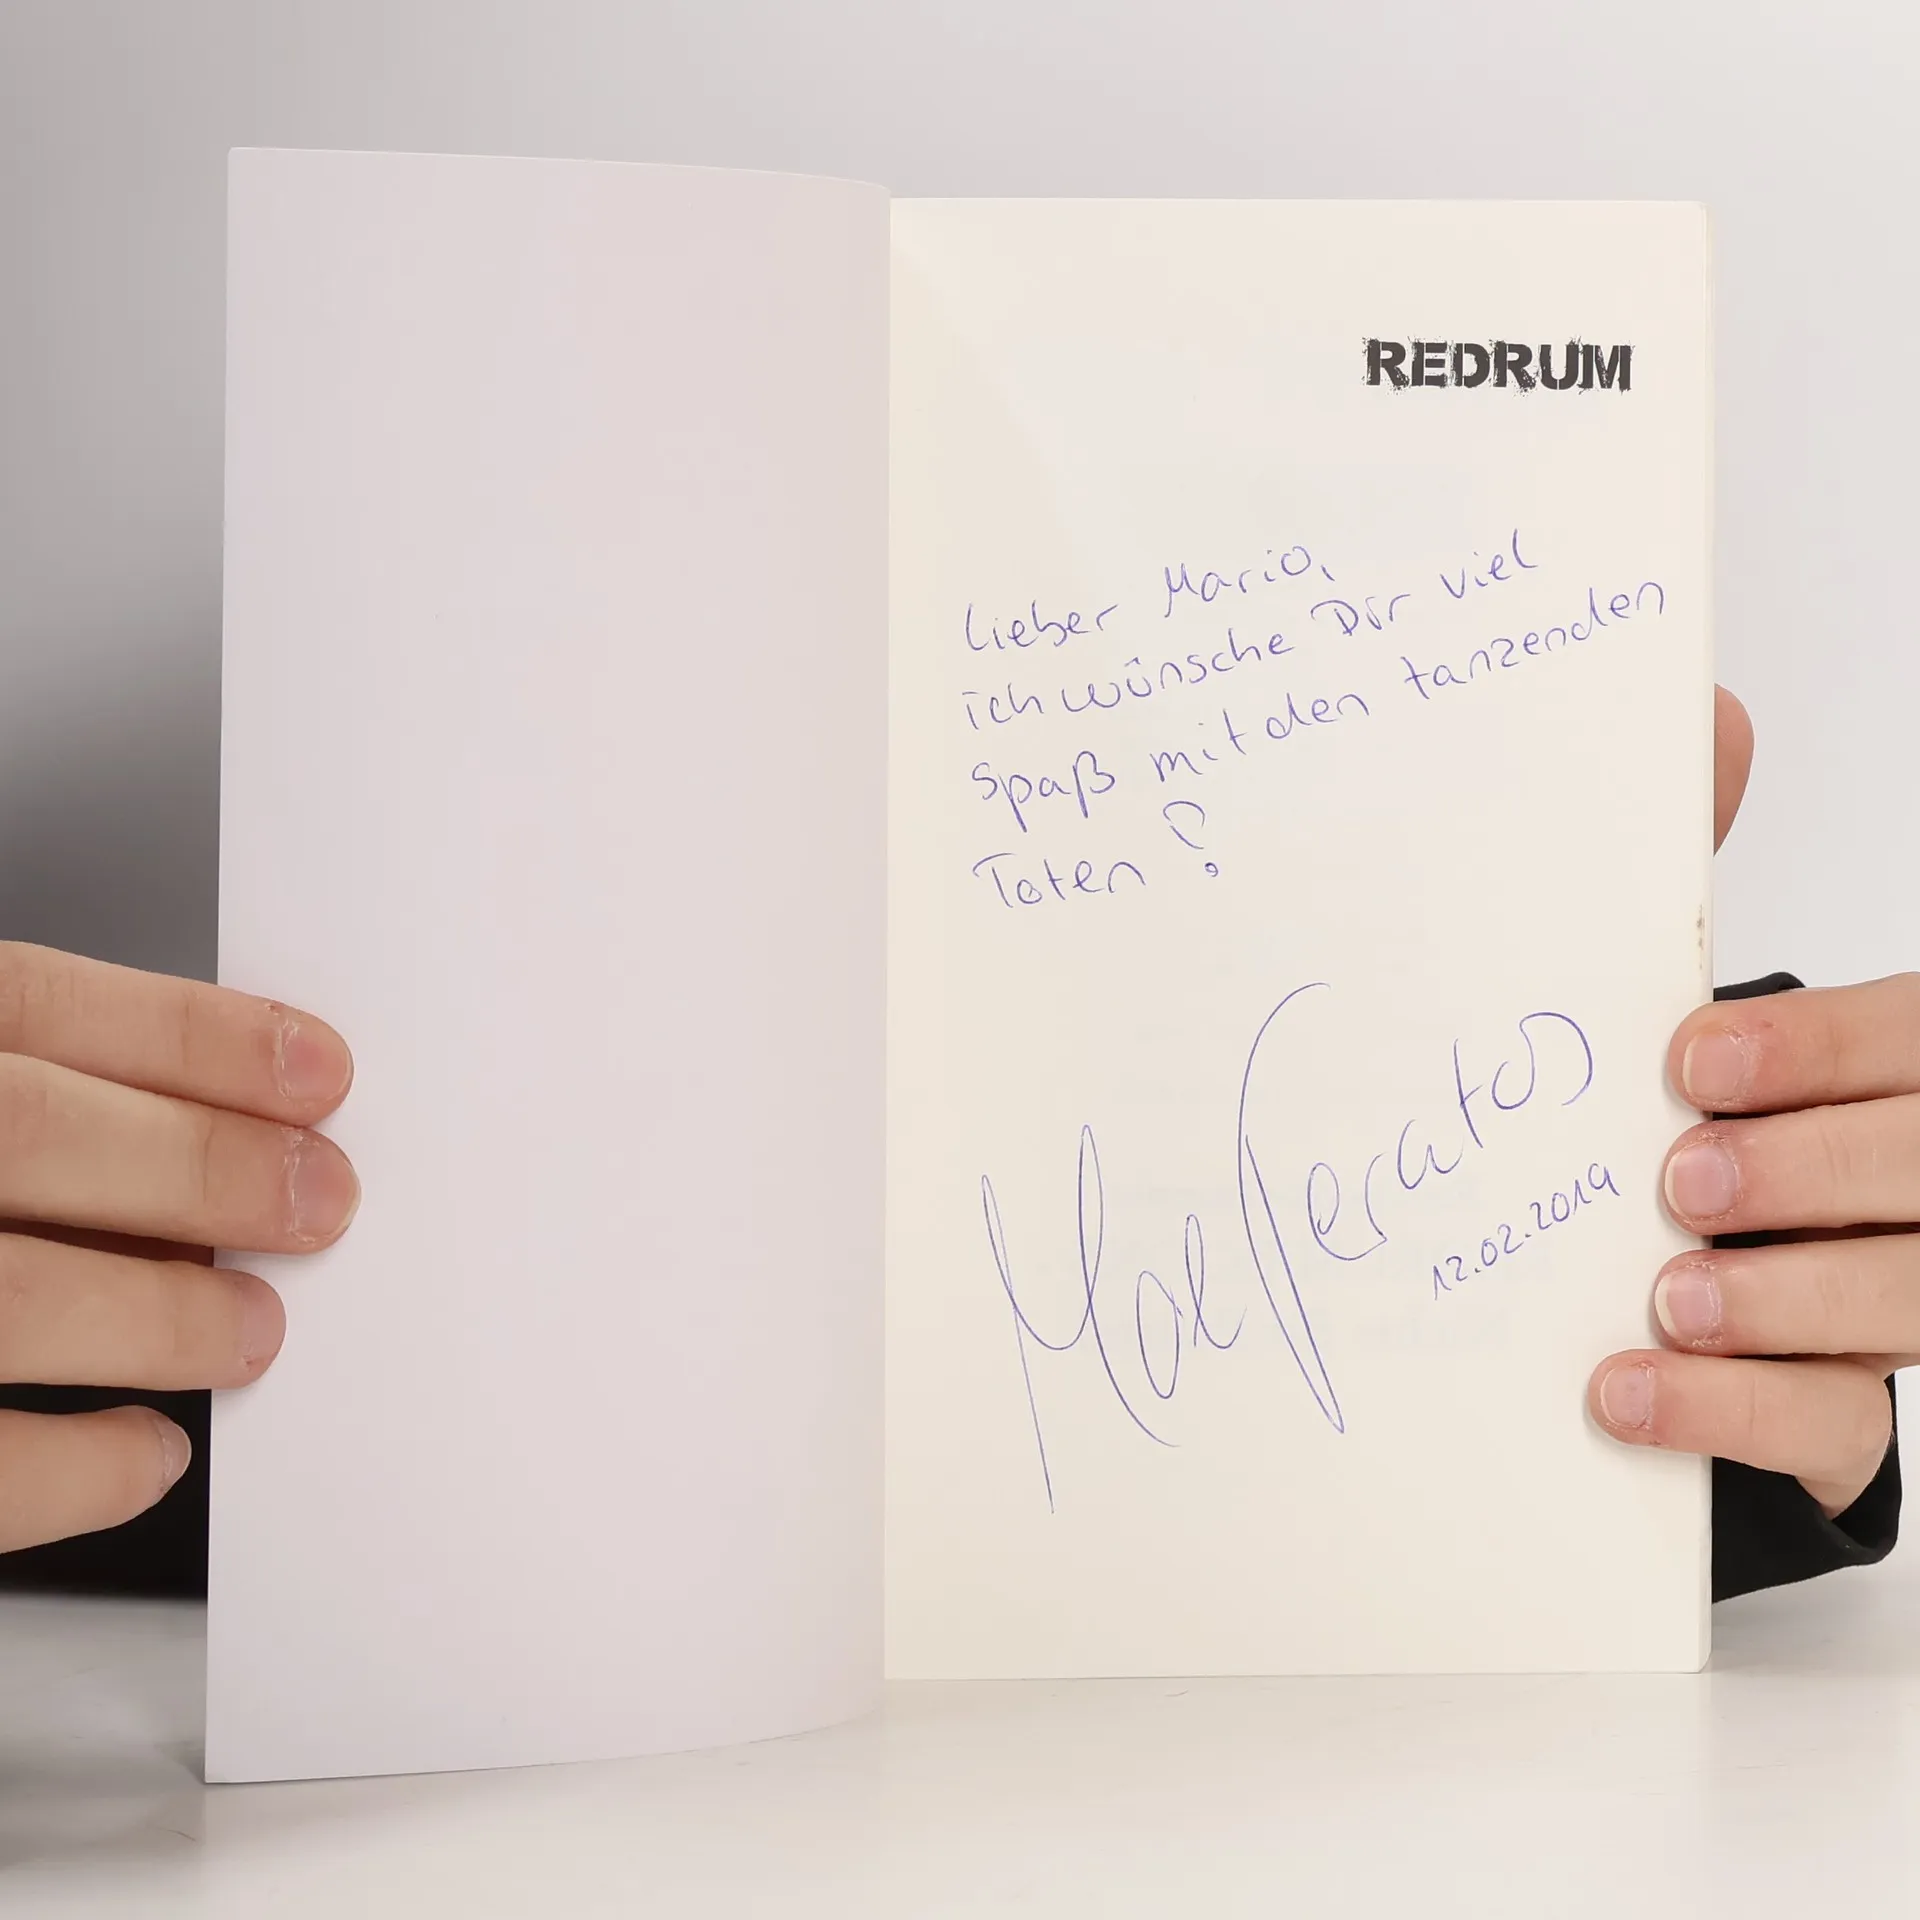 REDRUM
Lieber Mario,
ich wünsche Dir viel
Spaß mit den tanzenden
Toten!
12.02.2019